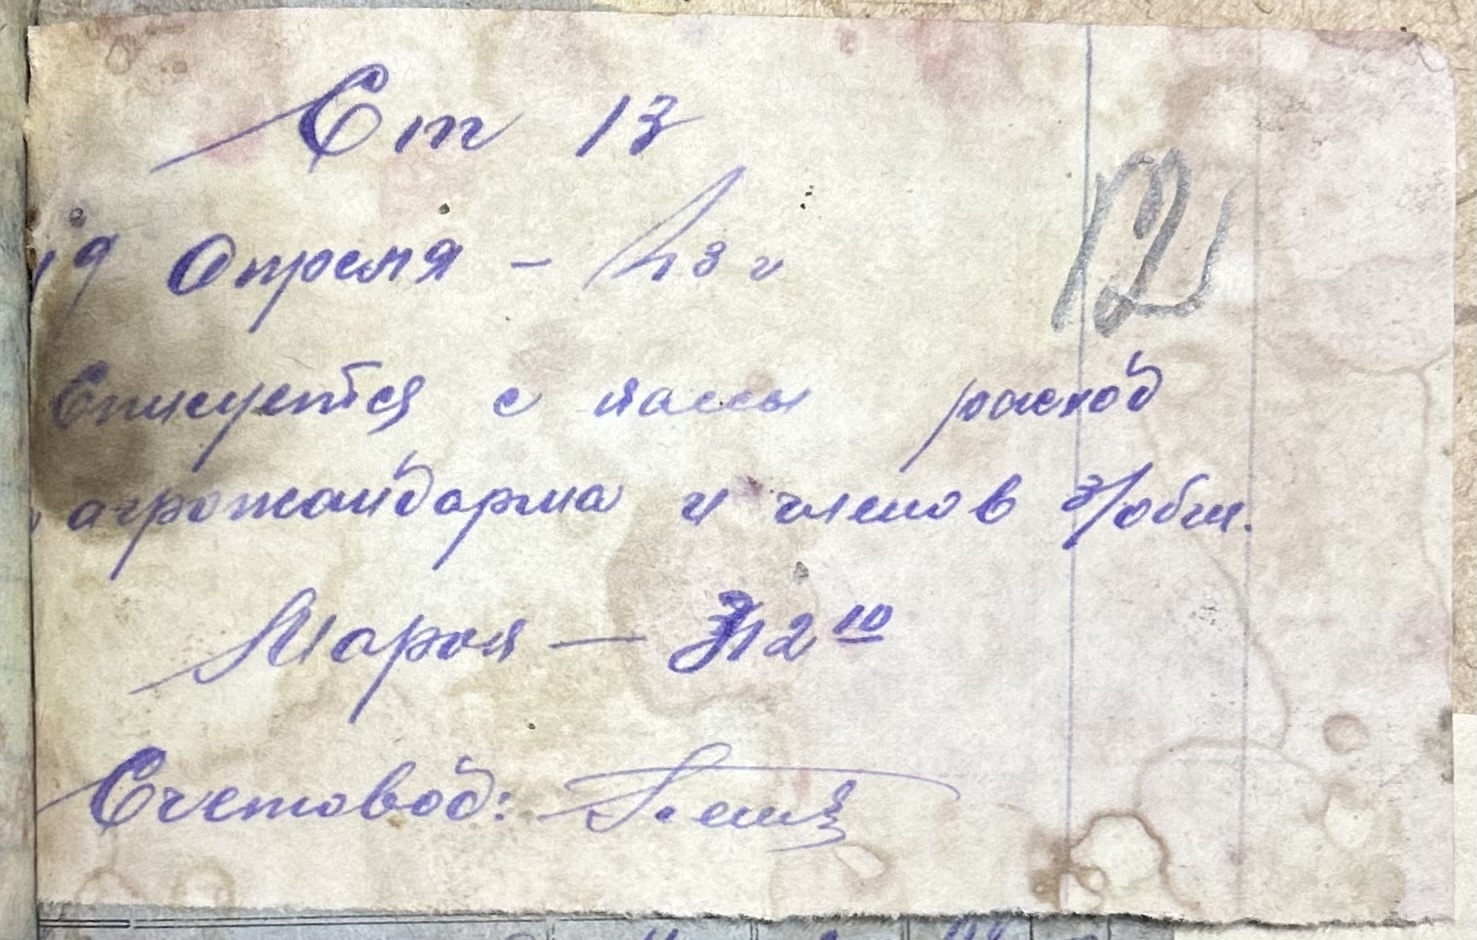 Ст 13
19 Апреля - 43 г
12
Списуется с кассы расход
агрожандарма и членов з/общ.
Марок — 312 10
Счетовод: